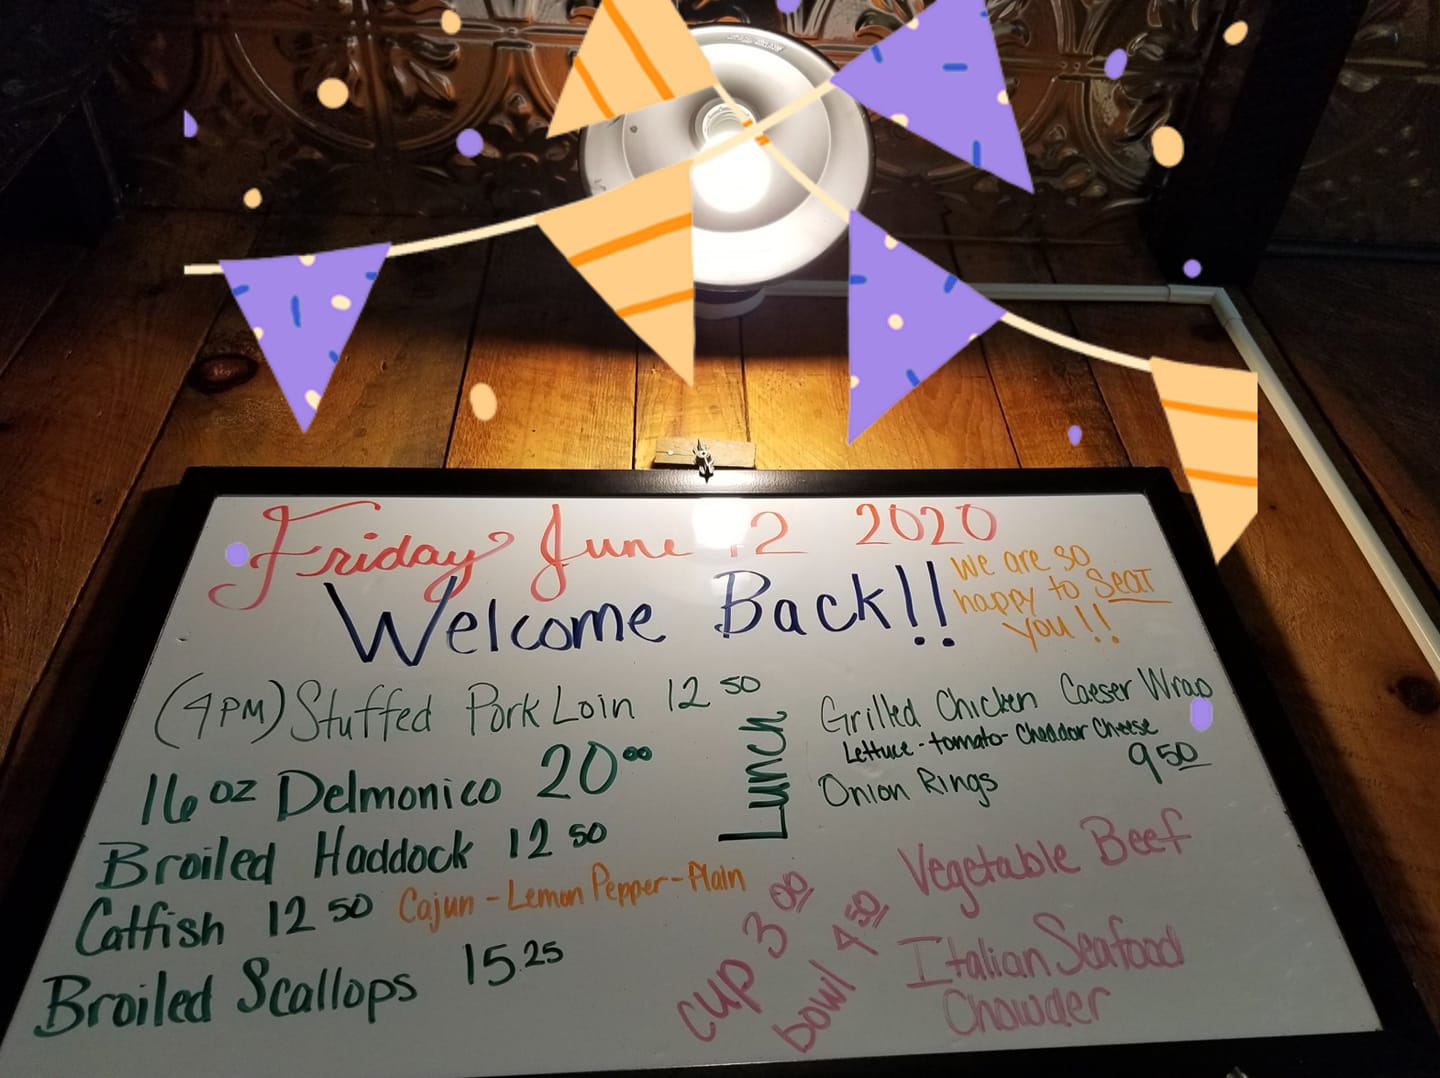 Friday June 12 2020
Welcome Back!!
We are so
happy to Seat
you!!
(4PM) Stuffed Pork Loin 12 50
16 oz Delmonico 20 00
Broiled Haddock 12 50
Catfish 12 50 Cajun - Lemon Pepper - Plain
Broiled Scallops 15.25
Lunch
Grilled Chicken Caeser Wrap
Lettuce - tomato - Cheddar Cheese
Onion Rings 9 50
cup 3 00
bowl 4 50
Vegetable Beef
Italian Seafood
Chowder